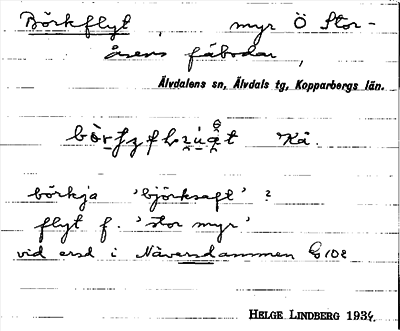 Börkflyt, myr Ö Stor-
åsens fäbodar,
Älvdalens sn, Älvdals tg, Kopparbergs län.
Kå.
börkja 'björksaft' ?
flyt f. 'stor myr'
vid ersd i Näversdammen
HELGE LINDBERG 1934.